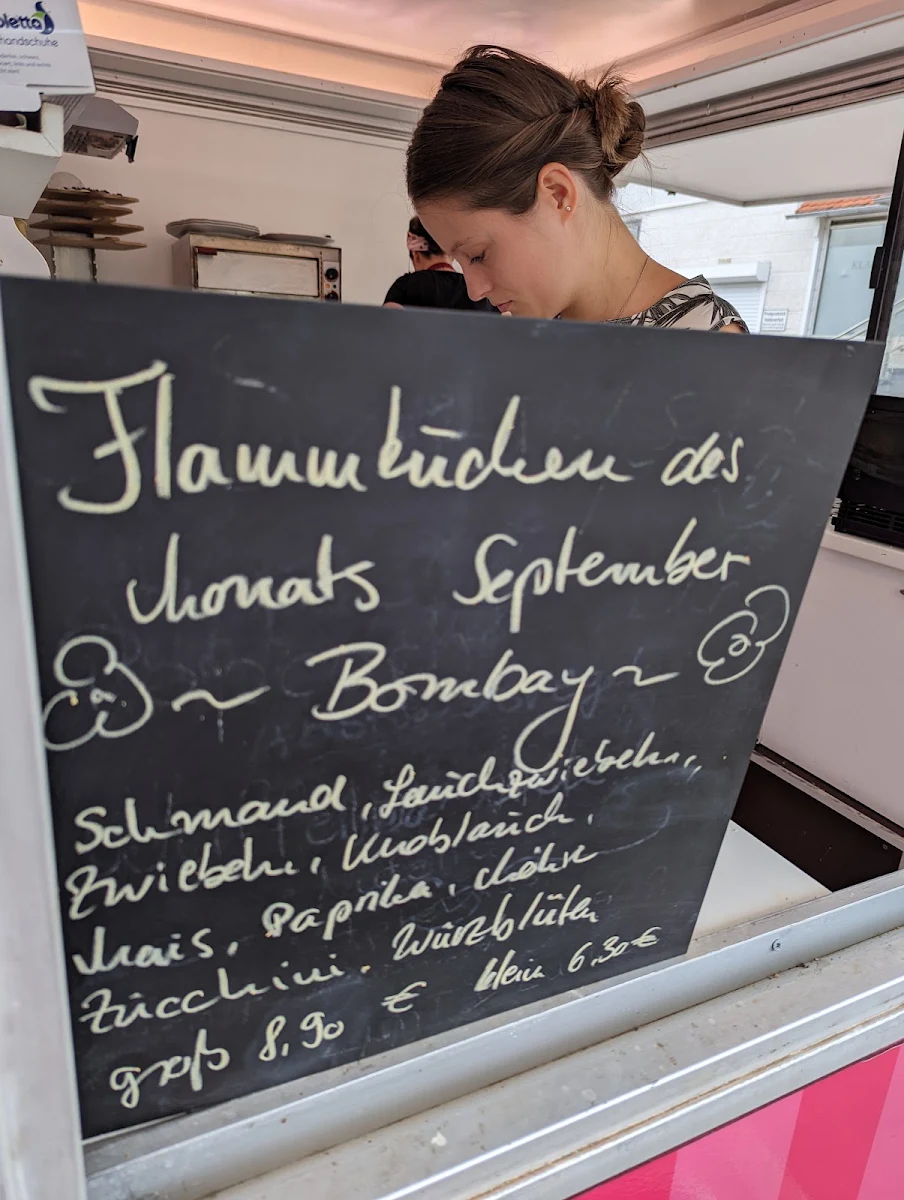 oletta
handschuhe
Flammkuchen des
Monats September
~ Bombay ~
Schmand, Lauchzwiebeln,
Zwiebeln, Knoblauch,
Mais, Paprika, Möhre
Zucchini, Würzblüten
groß 8,90 € klein 6,30 €